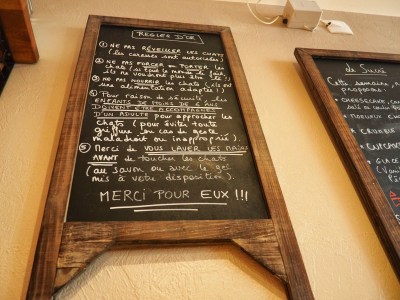 RÈGLES D'OR
① NE PAS RÉVEILLER LES CHATS
(les caresses sont autorisées)
② NE PAS FORCER OU PORTER LES
chats (si tout le monde le fait,
ils ne voudront plus être là)
③ NE PAS NOURRIR LES CHATS (ils ont
une alimentation adaptée !)
④ Pour raison de sécurité, les
ENFANTS DE MOINS DE 6 ANS
DOIVENT ÊTRE ACCOMPAGNÉS
D'UN ADULTE pour approcher les
chats (pour éviter toute
griffure en cas de geste
maladroit ou inapproprié).
⑤ Merci de VOUS LAVER LES MAINS
AVANT de toucher les chats
(au savon ou avec le gel
mis à votre disposition).
MERCI POUR EUX !!!
de Sucré
Cette semaine,
• CHEESECAKE
• CRUMBLE
• CUPCAKE